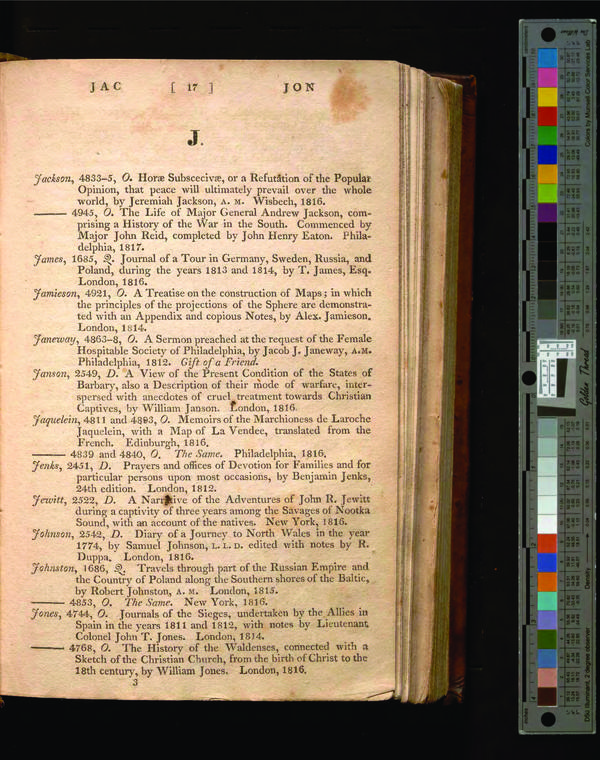 JAC [ 17 ] JON
J.
Jackson, 4833–5, O. Horæ Subsecivæ, or a Refutation of the Popular
Opinion, that peace will ultimately prevail over the whole
world, by Jeremiah Jackson, A. M. Wisbech, 1816.
—— 4945, O. The Life of Major General Andrew Jackson, com-
prising a History of the War in the South. Commenced by
Major John Reid, completed by John Henry Eaton. Phila-
delphia, 1817.
James, 1685, Q. Journal of a Tour in Germany, Sweden, Russia, and
Poland, during the years 1813 and 1814, by T. James, Esq.
London, 1816.
Jamieson, 4921, O. A Treatise on the construction of Maps; in which
the principles of the projections of the Sphere are demonstra-
ted with an Appendix and copious Notes, by Alex. Jamieson.
London, 1814.
Janeway, 4863–8, O. A Sermon preached at the request of the Female
Hospitable Society of Philadelphia, by Jacob J. Janeway, A.M.
Philadelphia, 1812. Gift of a Friend.
Janson, 2549, D. A View of the Present Condition of the States of
Barbary, also a Description of their mode of warfare, inter-
spersed with anecdotes of cruel treatment towards Christian
Captives, by William Janson. London, 1816.
Jaquelein, 4811 and 4893, O. Memoirs of the Marchioness de Laroche
Jaquelein, with a Map of La Vendee, translated from the
French. Edinburgh, 1816.
—— 4839 and 4840, O. The Same. Philadelphia, 1816.
Jenks, 2451, D. Prayers and offices of Devotion for Families and for
particular persons upon most occasions, by Benjamin Jenks,
24th edition. London, 1812.
Jewitt, 2522, D. A Narrative of the Adventures of John R. Jewitt
during a captivity of three years among the Savages of Nootka
Sound, with an account of the natives. New York, 1816.
Johnson, 2542, D. Diary of a Journey to North Wales in the year
1774, by Samuel Johnson, L. L. D. edited with notes by R.
Duppa. London, 1816.
Johnston, 1686, Q. Travels through part of the Russian Empire and
the Country of Poland along the Southern shores of the Baltic,
by Robert Johnston, A. M. London, 1815.
—— 4853, O. The Same. New York, 1816.
Jones, 4744, O. Journals of the Sieges, undertaken by the Allies in
Spain in the years 1811 and 1812, with notes by Lieutenant
Colonel John T. Jones. London, 1814.
—— 4768, O. The History of the Waldenses, connected with a
Sketch of the Christian Church, from the birth of Christ to the
18th century, by William Jones. London, 1816.
3
Golden Thread